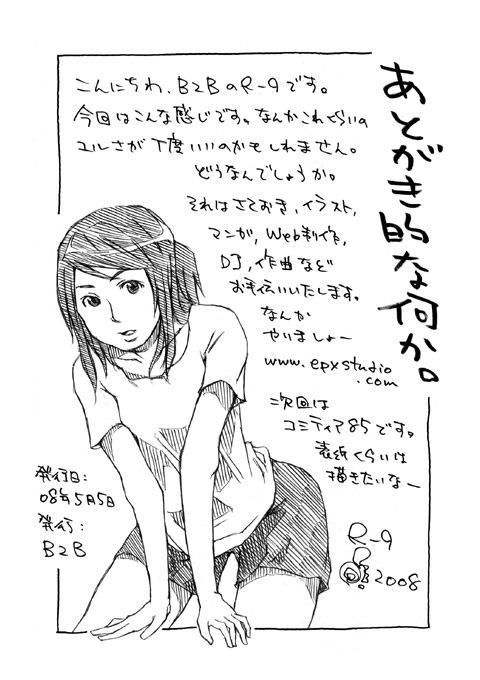 あとがき的な何か。
こんにちわ、B2BのR-9です。
今回はこんな感じです。なんかこれくらいの
ユルさが丁度いいのかもしれません。
どうなんでしょうか。
それはさておき、イラスト、
マンガ、Web制作、
DJ、作曲など
お手伝いいたします。
なんか
やいましょー
www.epxstudio
.com
次回は
コミティア85です。
表紙くらいは
描きたいなー
発行日:
08年5月5日
発行:
B2B
R-9
2008